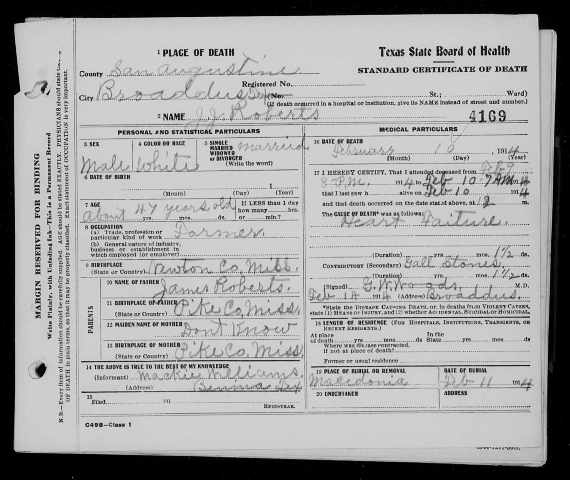 MARGIN RESERVED FOR BINDING
Write Plainly, with Unfading Ink—This is a Permanent Record
1 PLACE OF DEATH
Texas State Board of Health
STANDARD CERTIFICATE OF DEATH
County San Augustine
Registered No.
City Broaddus Tex (No. St.; Ward)
(If death occurred in a hospital or institution, give its NAME instead of street and number.)
2 NAME J.J. Roberts
4169
PERSONAL AND STATISTICAL PARTICULARS
3 SEX Male
4 COLOR OR RACE White
5 SINGLE MARRIED WIDOWED or DIVORCED (Write the word) married
6 DATE OF BIRTH
(Month) (Day) (Year)
7 AGE about 47 years old
yrs. mos. ds.
If LESS than 1 day how many hrs.
8 OCCUPATION
(a) Trade, profession or particular kind of work Farmer
(b) General nature of industry, business or establishment in which employed (or employer)
9 BIRTHPLACE
(State or Country) Newton Co, Miss.
PARENTS
10 NAME OF FATHER James Roberts.
11 BIRTHPLACE OF FATHER
(State or Country) Pike Co, Miss
12 MAIDEN NAME OF MOTHER Don't Know
13 BIRTHPLACE OF MOTHER
(State or Country) Pike Co, Miss.
14 THE ABOVE IS TRUE TO THE BEST OF MY KNOWLEDGE
(Informant) Mackie Williams.
(Address) Tex
15 Filed 191
REGISTRAR.
C498—Class 1
MEDICAL PARTICULARS
16 DATE OF DEATH
February 10 1914
(Month) (Day) (Year)
17 I HEREBY CERTIFY, That I attended deceased from Feb 9
8 P.M. 1914 to Feb 10 7 AM 1914
that I last saw h alive on Feb 10 1914
and that death occurred on the date stated above, at 12 m.
The CAUSE OF DEATH* was as follows:
Heart Failure.
(Duration) yrs. mos. 1½ ds.
CONTRIBUTORY (Secondary) Gall Stones
(Duration) yrs. mos. 1½ ds.
(Signed) G.W. Woods, M.D.
Feb 14 1914 (Address) Broaddus.
*State the Disease Causing Death, or, in deaths from Violent Causes, state (1) Means of Injury, and (2) whether Accidental, Suicidal or Homicidal.
18 LENGTH OF RESIDENCE (For Hospitals, Institutions, Transients, or Recent Residents.)
At place of death yrs. mos. ds. State yrs. mos. ds.
Where was disease contracted,
If not at place of death?
Former or usual residence
19 PLACE OF BURIAL OR REMOVAL Macedonia
DATE OF BURIAL Feb 11 1914
20 UNDERTAKER
ADDRESS